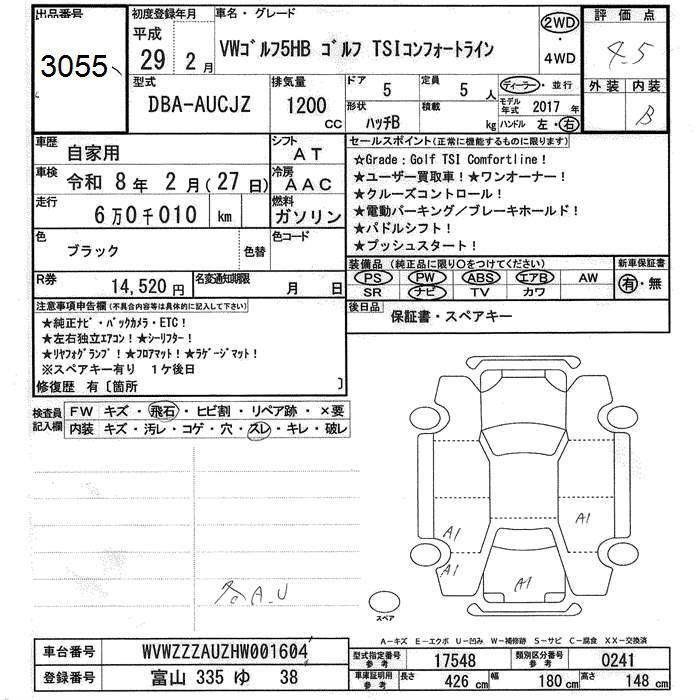 出品番号
3055
初度登録年月
平成
29 2月
車名・グレード
VWゴルフ5HB ゴルフ TSIコンフォートライン
2WD
・
4WD
評価点
4.5
外装 内装
B
型式
DBA-AUCJZ
排気量
1200 CC
ドア
5
定員
5 人
ディーラー・並行
モデル年式 2017 年
形状
ハッチB
積載
kg
ハンドル 左・右
車歴
自家用
シフト
AT
車検
令和 8年 2月(27日)
冷房
AAC
走行
6万0千010 km
燃料
ガソリン
色
ブラック
色替
色コード
R券
14,520円
名変通知期限
月 日
セールスポイント(正常に機能するものに限ります)
☆Grade:Golf TSI Comfortline!
★ユーザー買取車!★ワンオーナー!
★クルーズコントロール!
★電動パーキング/ブレーキホールド!
★パドルシフト!
★プッシュスタート!
装備品(純正品に限り〇をつけてください)
PS PW ABS エアB AW
SR ナビ TV カワ
新車保証書
有・無
後日品
保証書・スペアキー
注意事項申告欄(不具合内容等は具体的に記入して下さい)
★純正ナビ・バックカメラ・ETC!
★左右独立エアコン!★シーリフター!
★リヤフォグランプ!★フロアマット!★ラゲージマット!
※スペアキー有り 1ケ後日
修復歴 有〔箇所 〕
検査員記入欄
FW キズ・飛石・ヒビ割・リペア跡・×要
内装 キズ・汚レ・コゲ・穴・スレ・キレ・破レ
各A.U
A1
A1
A1
A1
スペア
A-キズ E-エクボ U-凹み W-補修跡 S-サビ C-腐食 XX-交換済
車台番号
WVWZZZAUZHW001604
登録番号
富山 335 ゆ 38
型式指定番号参考
17548
類別区分番号参考
0241
車庫証明用参考
長さ 426 cm
幅 180 cm
高さ 148 cm